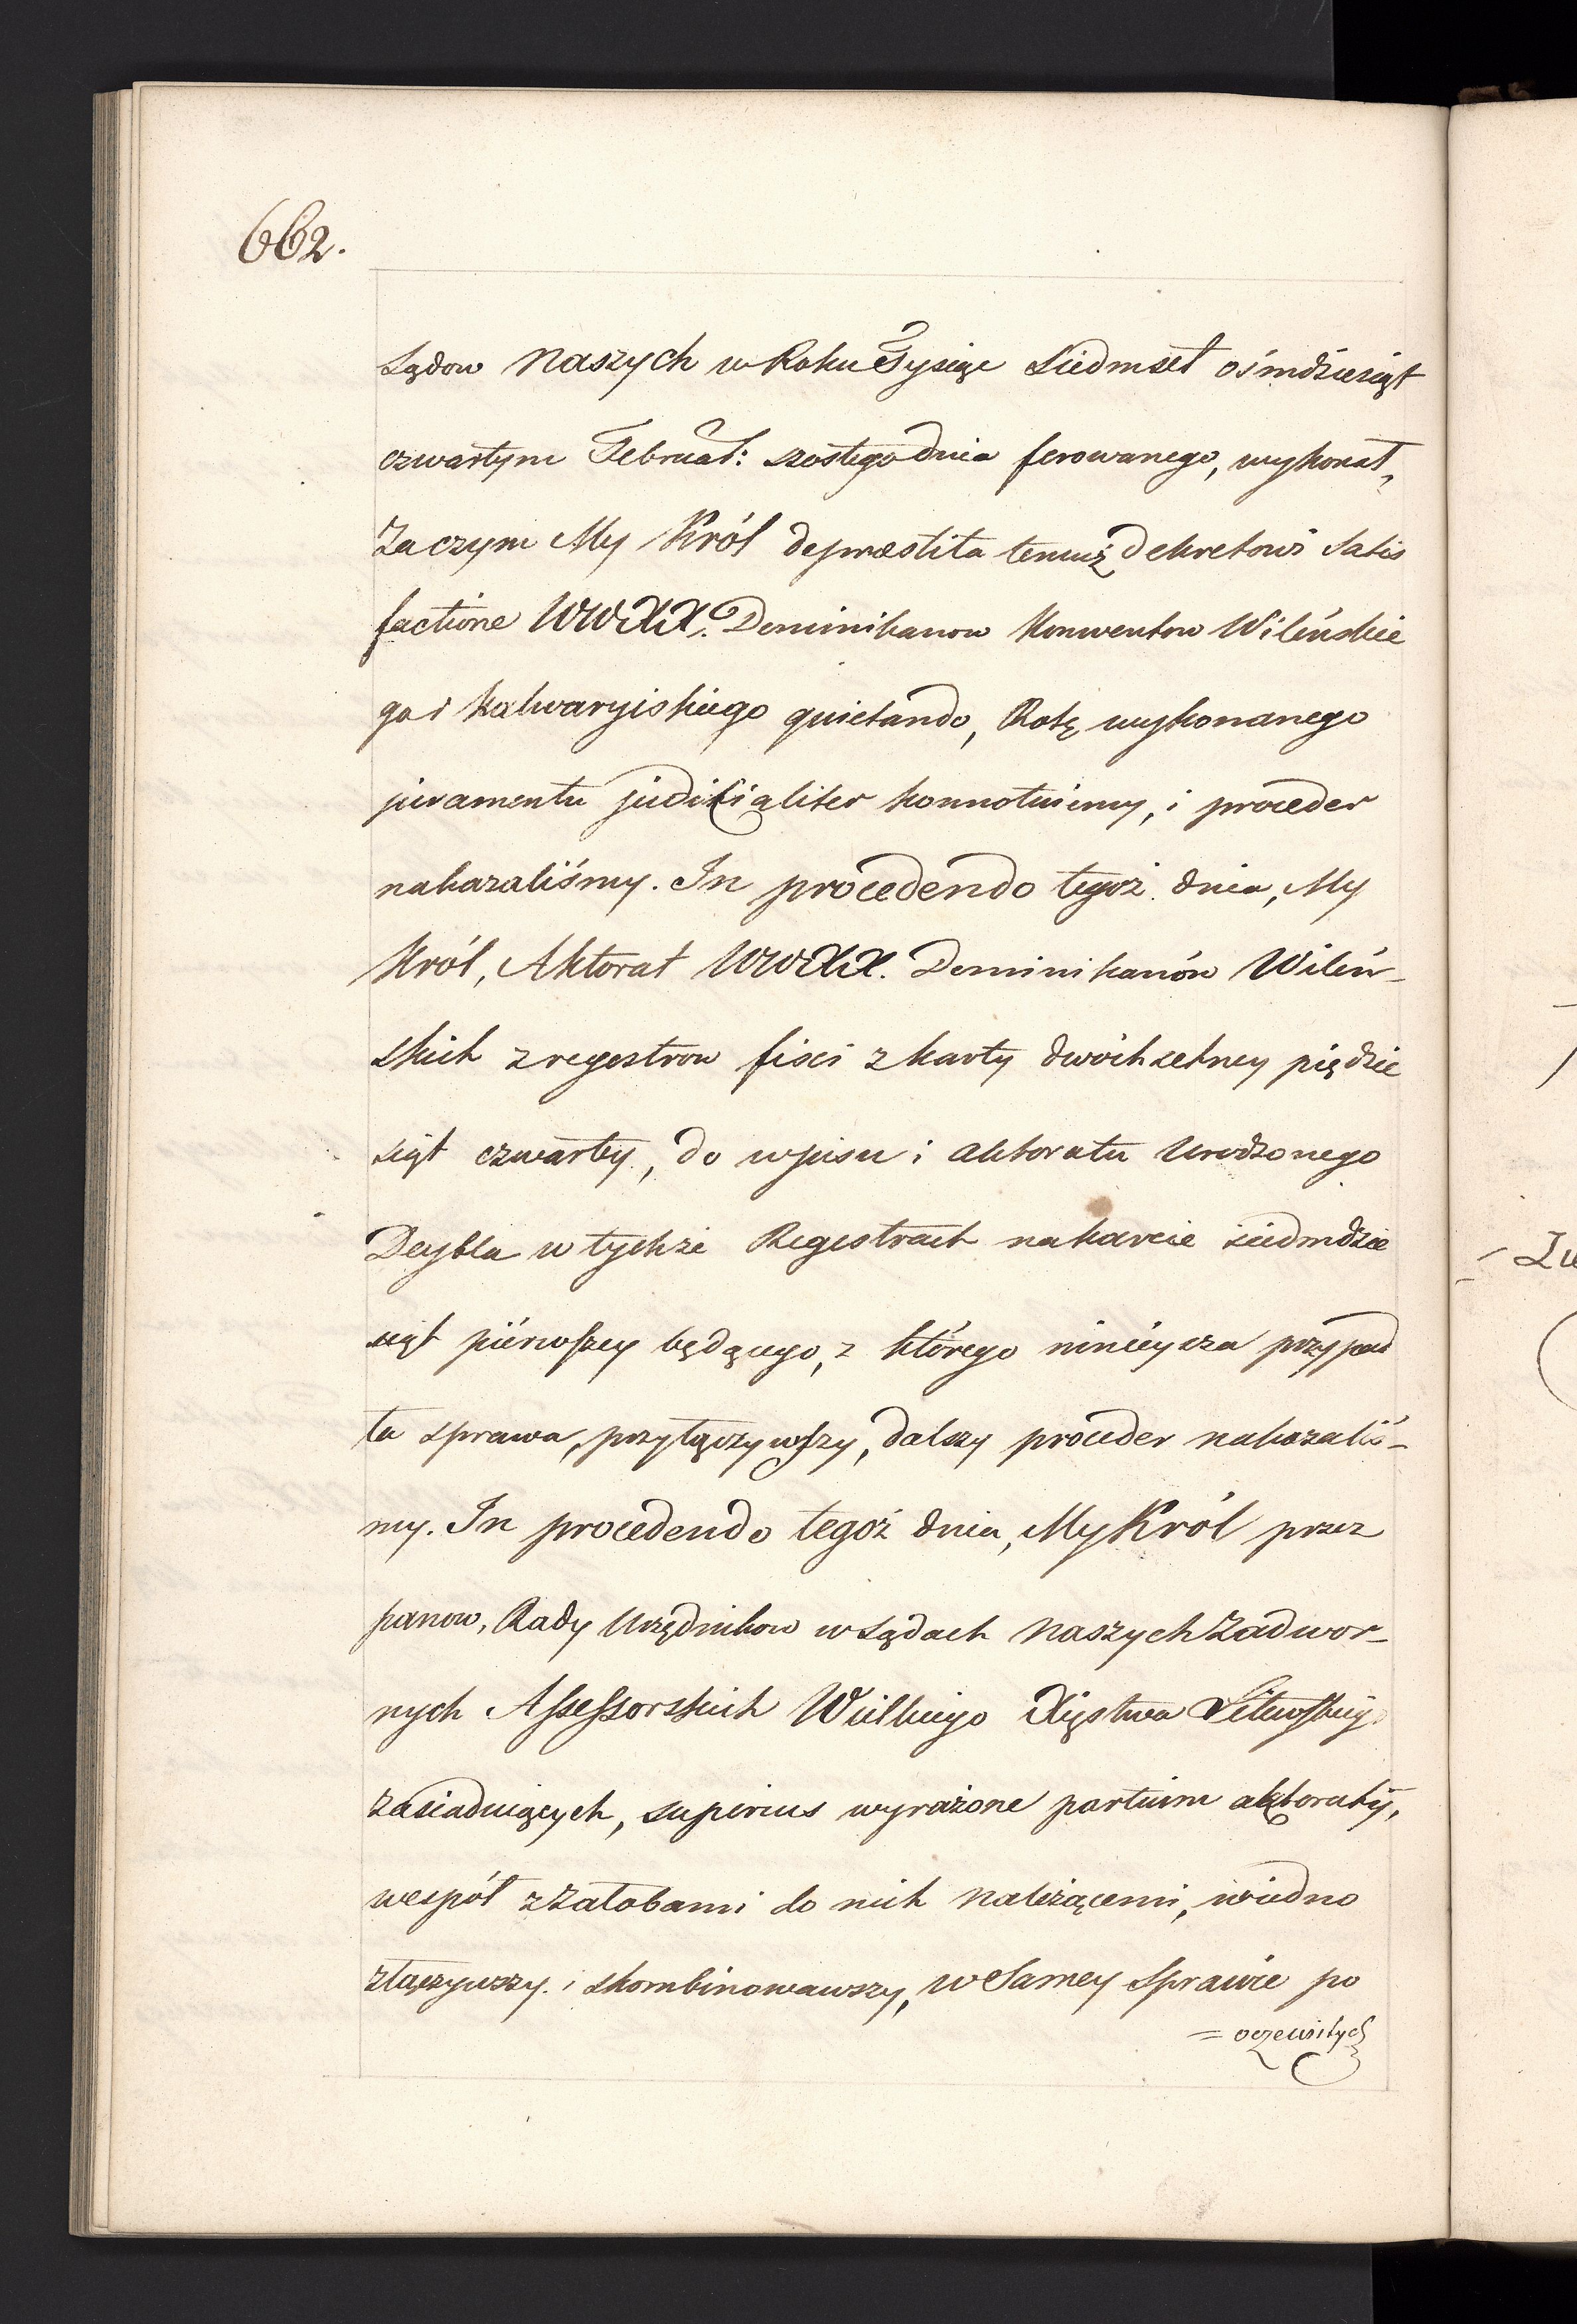 662.
Sądow Naszych w Roku Tysiąc Siedmset ośmdziesiąt
czwartym Februar: szostego dnia ferowanego, wykonał,
Zaczym My Król de præstita temuż dekretowi Satis
factione WWXX. Dominikanow Konwentow Wileńskie
go i Kalwaryiskiego quietando, Rotę wykonanego
juramentu judicialiter konnotuiemy, i proceder
nakazaliśmy. In procedendo tegoż dnia, My
Król, Aktorat WWXX. Dominikanów Wileń-
skich z regestrow fisci z karty dwóchsetney piędzie
siąt czwartey, do wpisu i aktoratu Urodzonego
Deybla w tychże Regestrach na karcie siedmdzie
siąt piérwszey będącego, z którego ninieysza przypad
ła sprawa, przyłączywszy, dalszy proceder nakazaliś-
my. In procedendo tegoż dnia, My Król przez
panow, Rady Urzędnikow w Sądach Naszych Zadwor-
nych Assessorskich Wielkiego Xięstwa Litewskieg.
zasiadaiących, superius wyrażone partium aktoraty,
wespół z żałobami do nich należącemi, w iedno
złączywszy i skombinowawszy, w Samey Sprawie po
= oczewistych